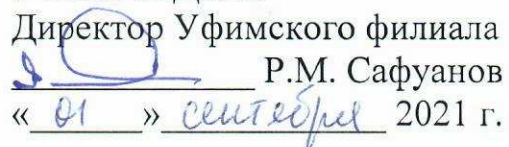 Директор Уфимского филиала
Р.М. Сафуанов
«01» сентября 2021 г.